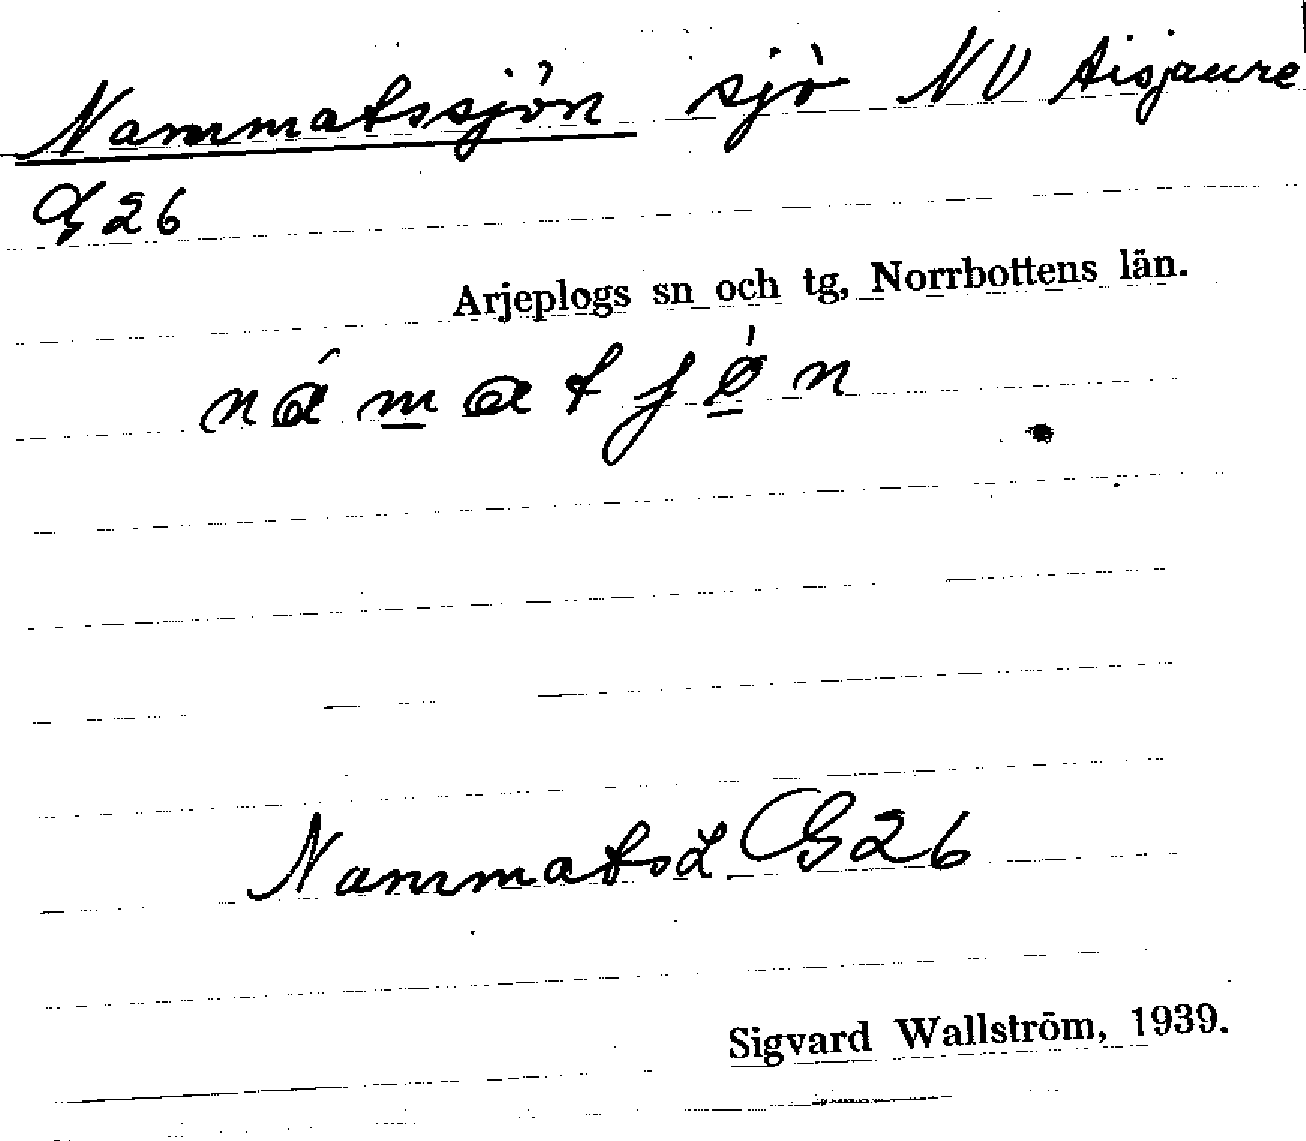 Nammatssjön sjö NV Aisjaure
G 26
Arjeplogs sn och tg, Norrbottens län.
Nammats G 26
Sigvard Wallström, 1939.